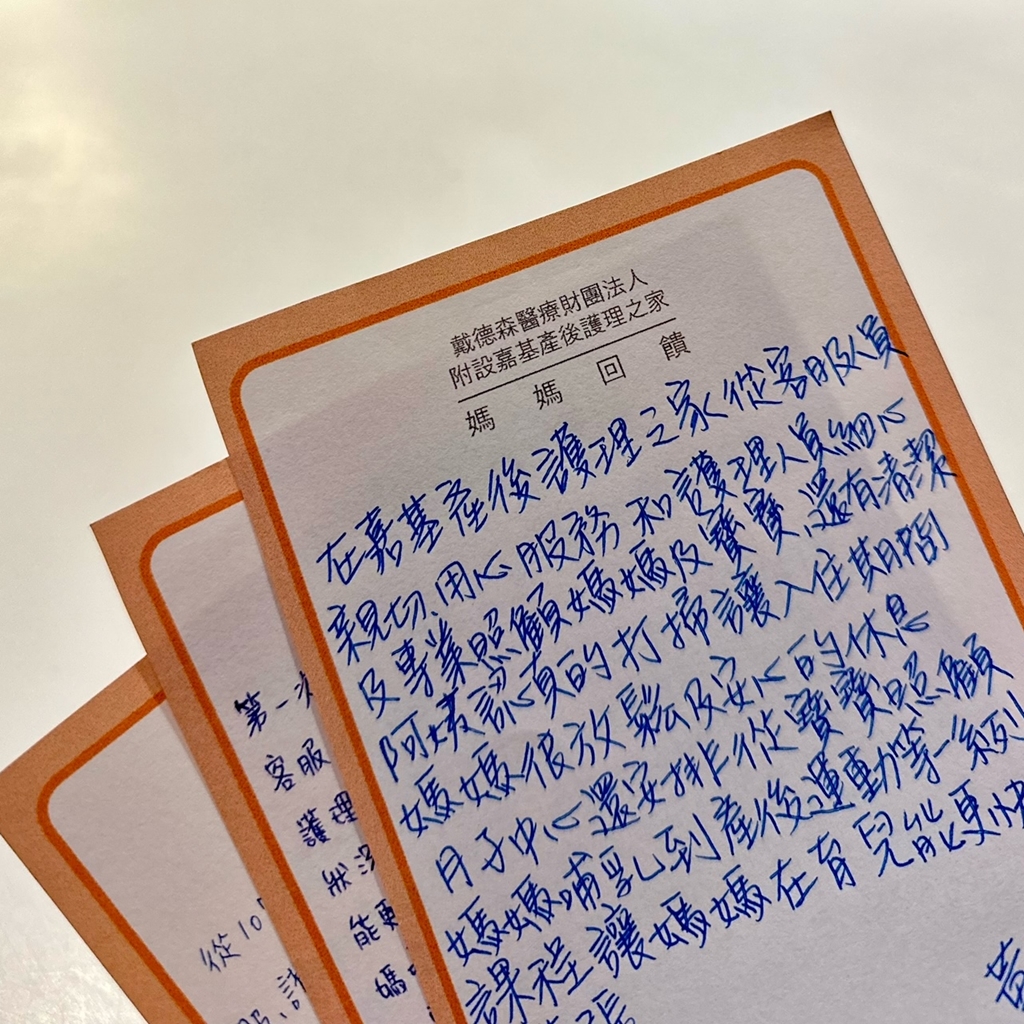 戴德森醫療財團法人
附設嘉基產後護理之家
媽媽回饋
在嘉基產後護理之家從客服人員
親切、用心服務和護理人員細心
及專業照顧媽媽及寶寶,還有清潔
阿姨認真的打掃讓入住期間
媽媽很放鬆及安心的休息
月子中心還安排從寶寶照顧
媽媽哺乳到產後運動等一系列
課程讓媽媽在育兒能更快
第一次
客服
護理
狀況
能更
媽
從10